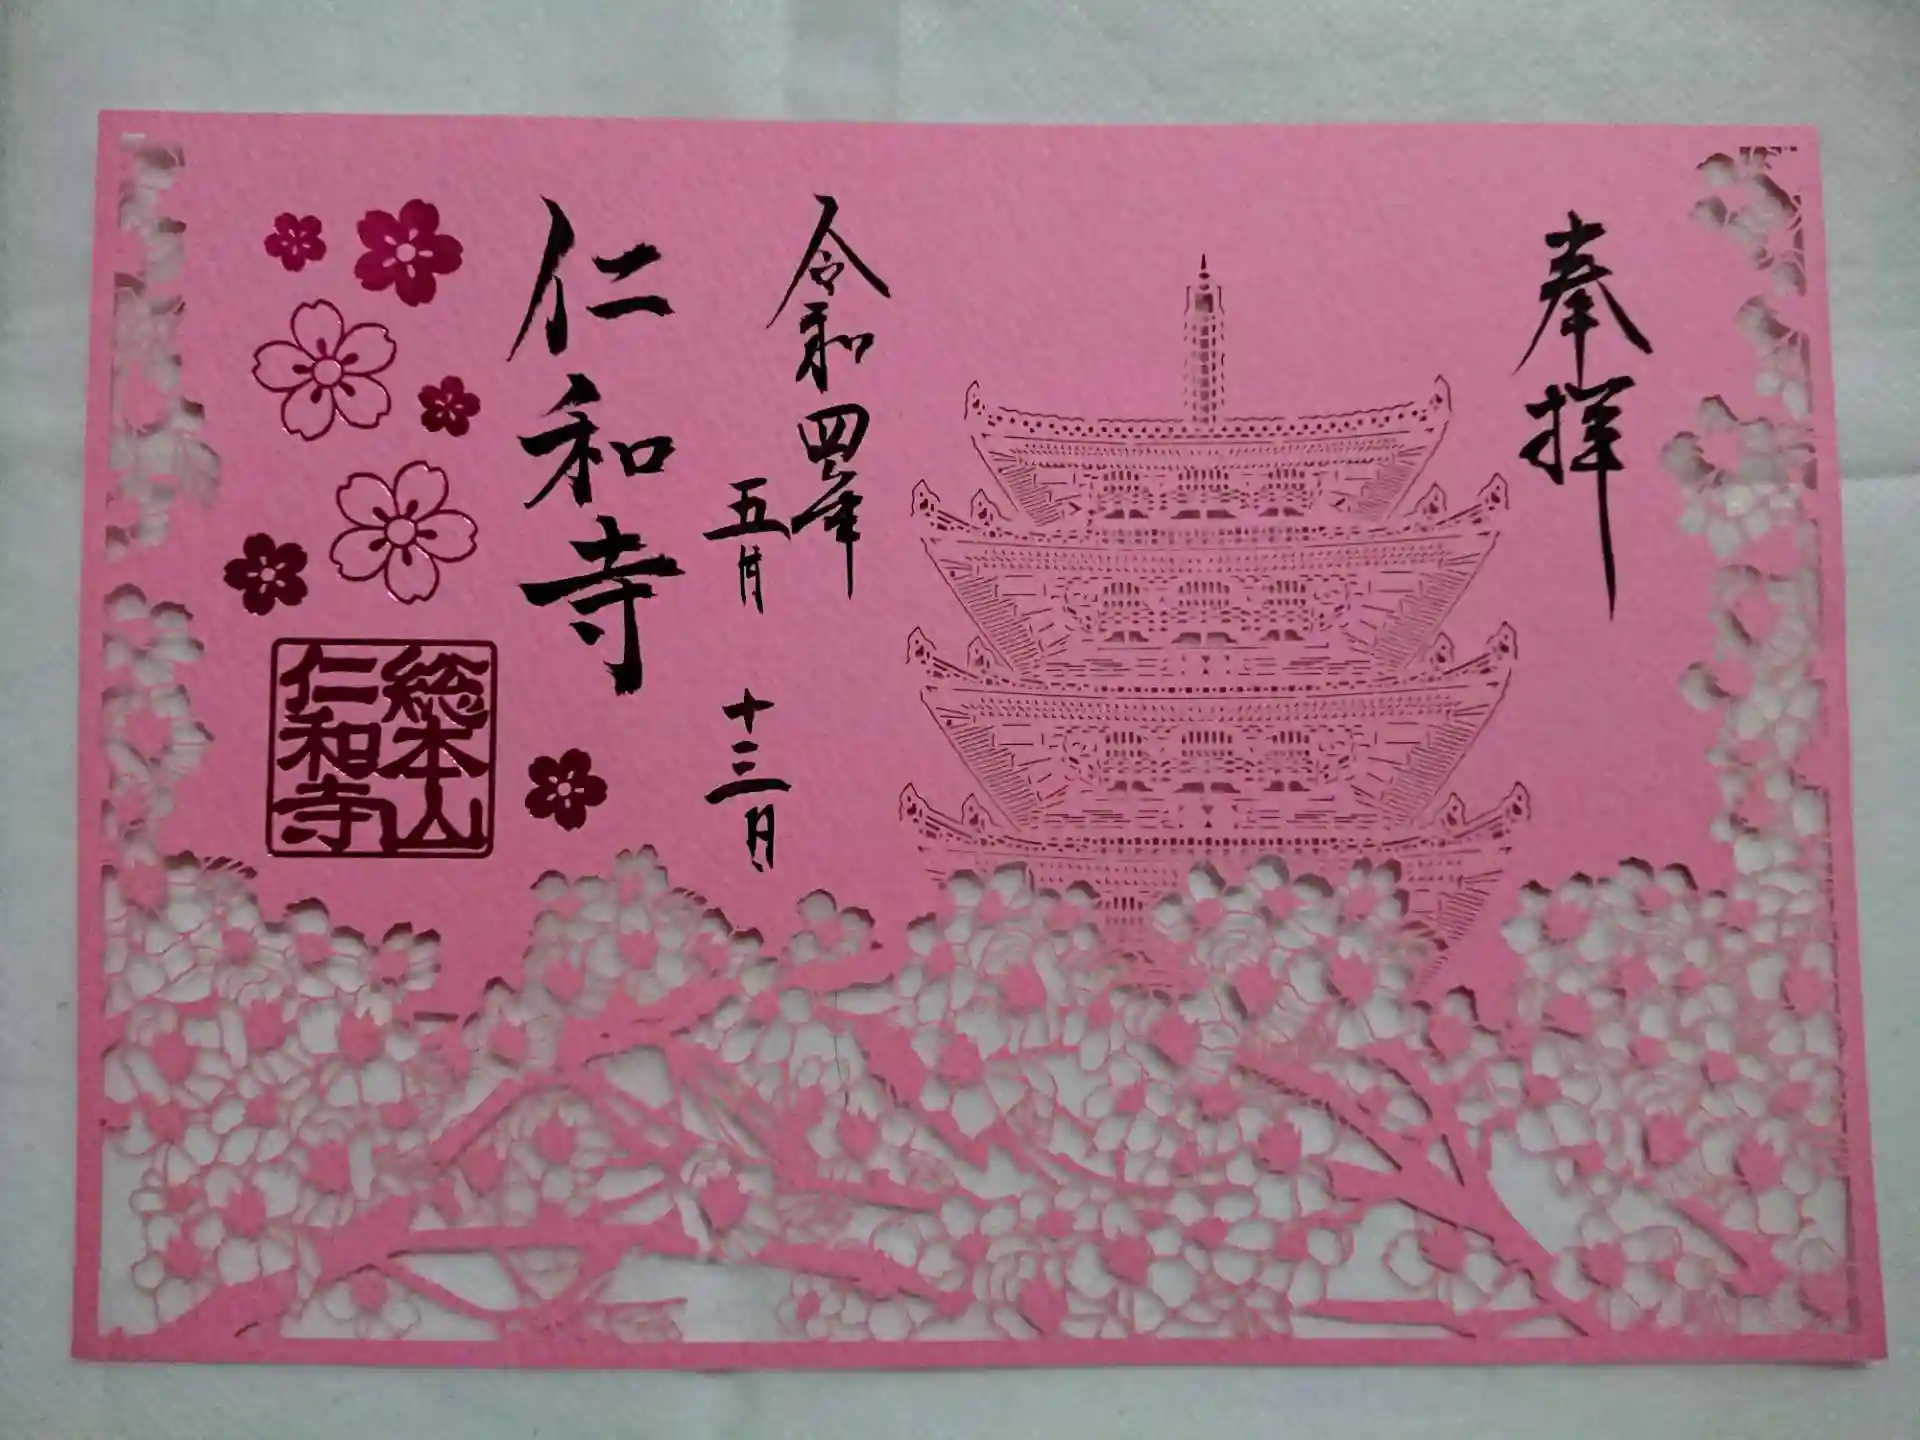 奉拝
令和四年
五月 十三日
仁和寺
総本山
仁和寺